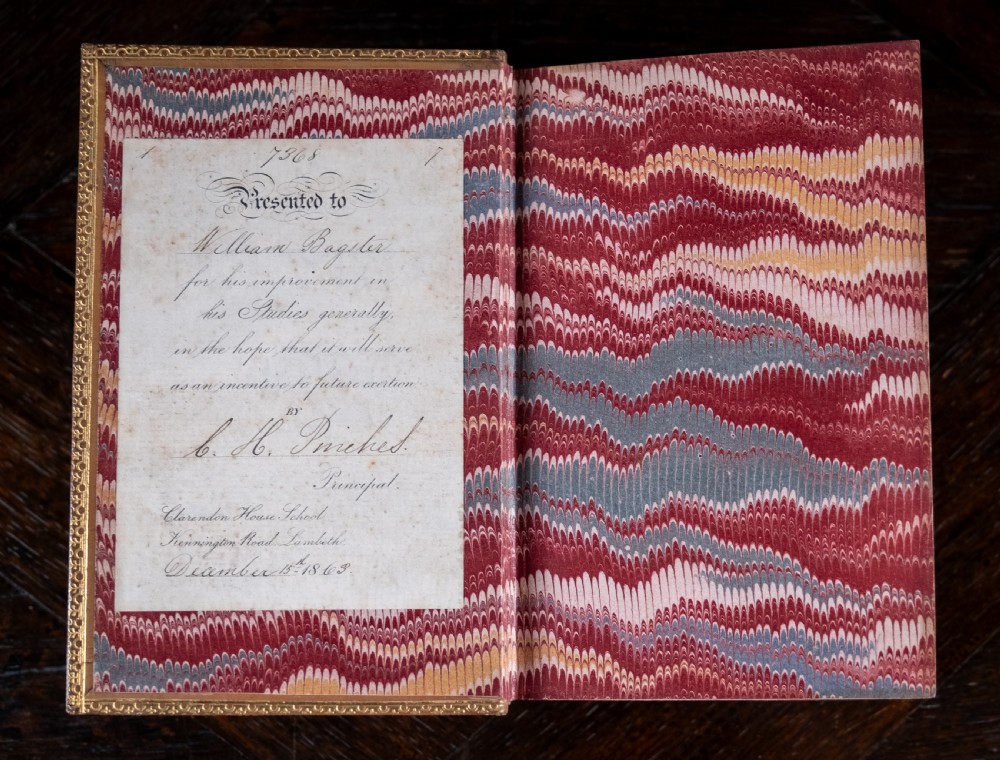 1 7368 7
Presented to
William Bagster
for his improvement in
his Studies generally,
in the hope that it will serve
as an incentive to future exertion
BY
C. H. Pinches.
Principal.
Clarendon House School,
Kennington Road Lambeth
December 15th 1863.